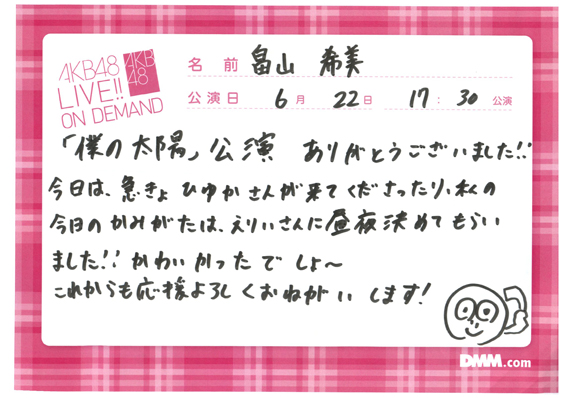 AKB48
LIVE!!
ON DEMAND
AKB
48
名前 畠山 希美
公演日 6月 22日 17:30 公演
「僕の太陽」公演 ありがとうございました!!
今日は、急きょ ひゆかさんが来てくださったり、私の
今日のかみがたは、えりぃさんに昼夜決めてもらい
ました!! かわいかったでしょ〜
これからも応援よろしくおねがいします!
DMM.com